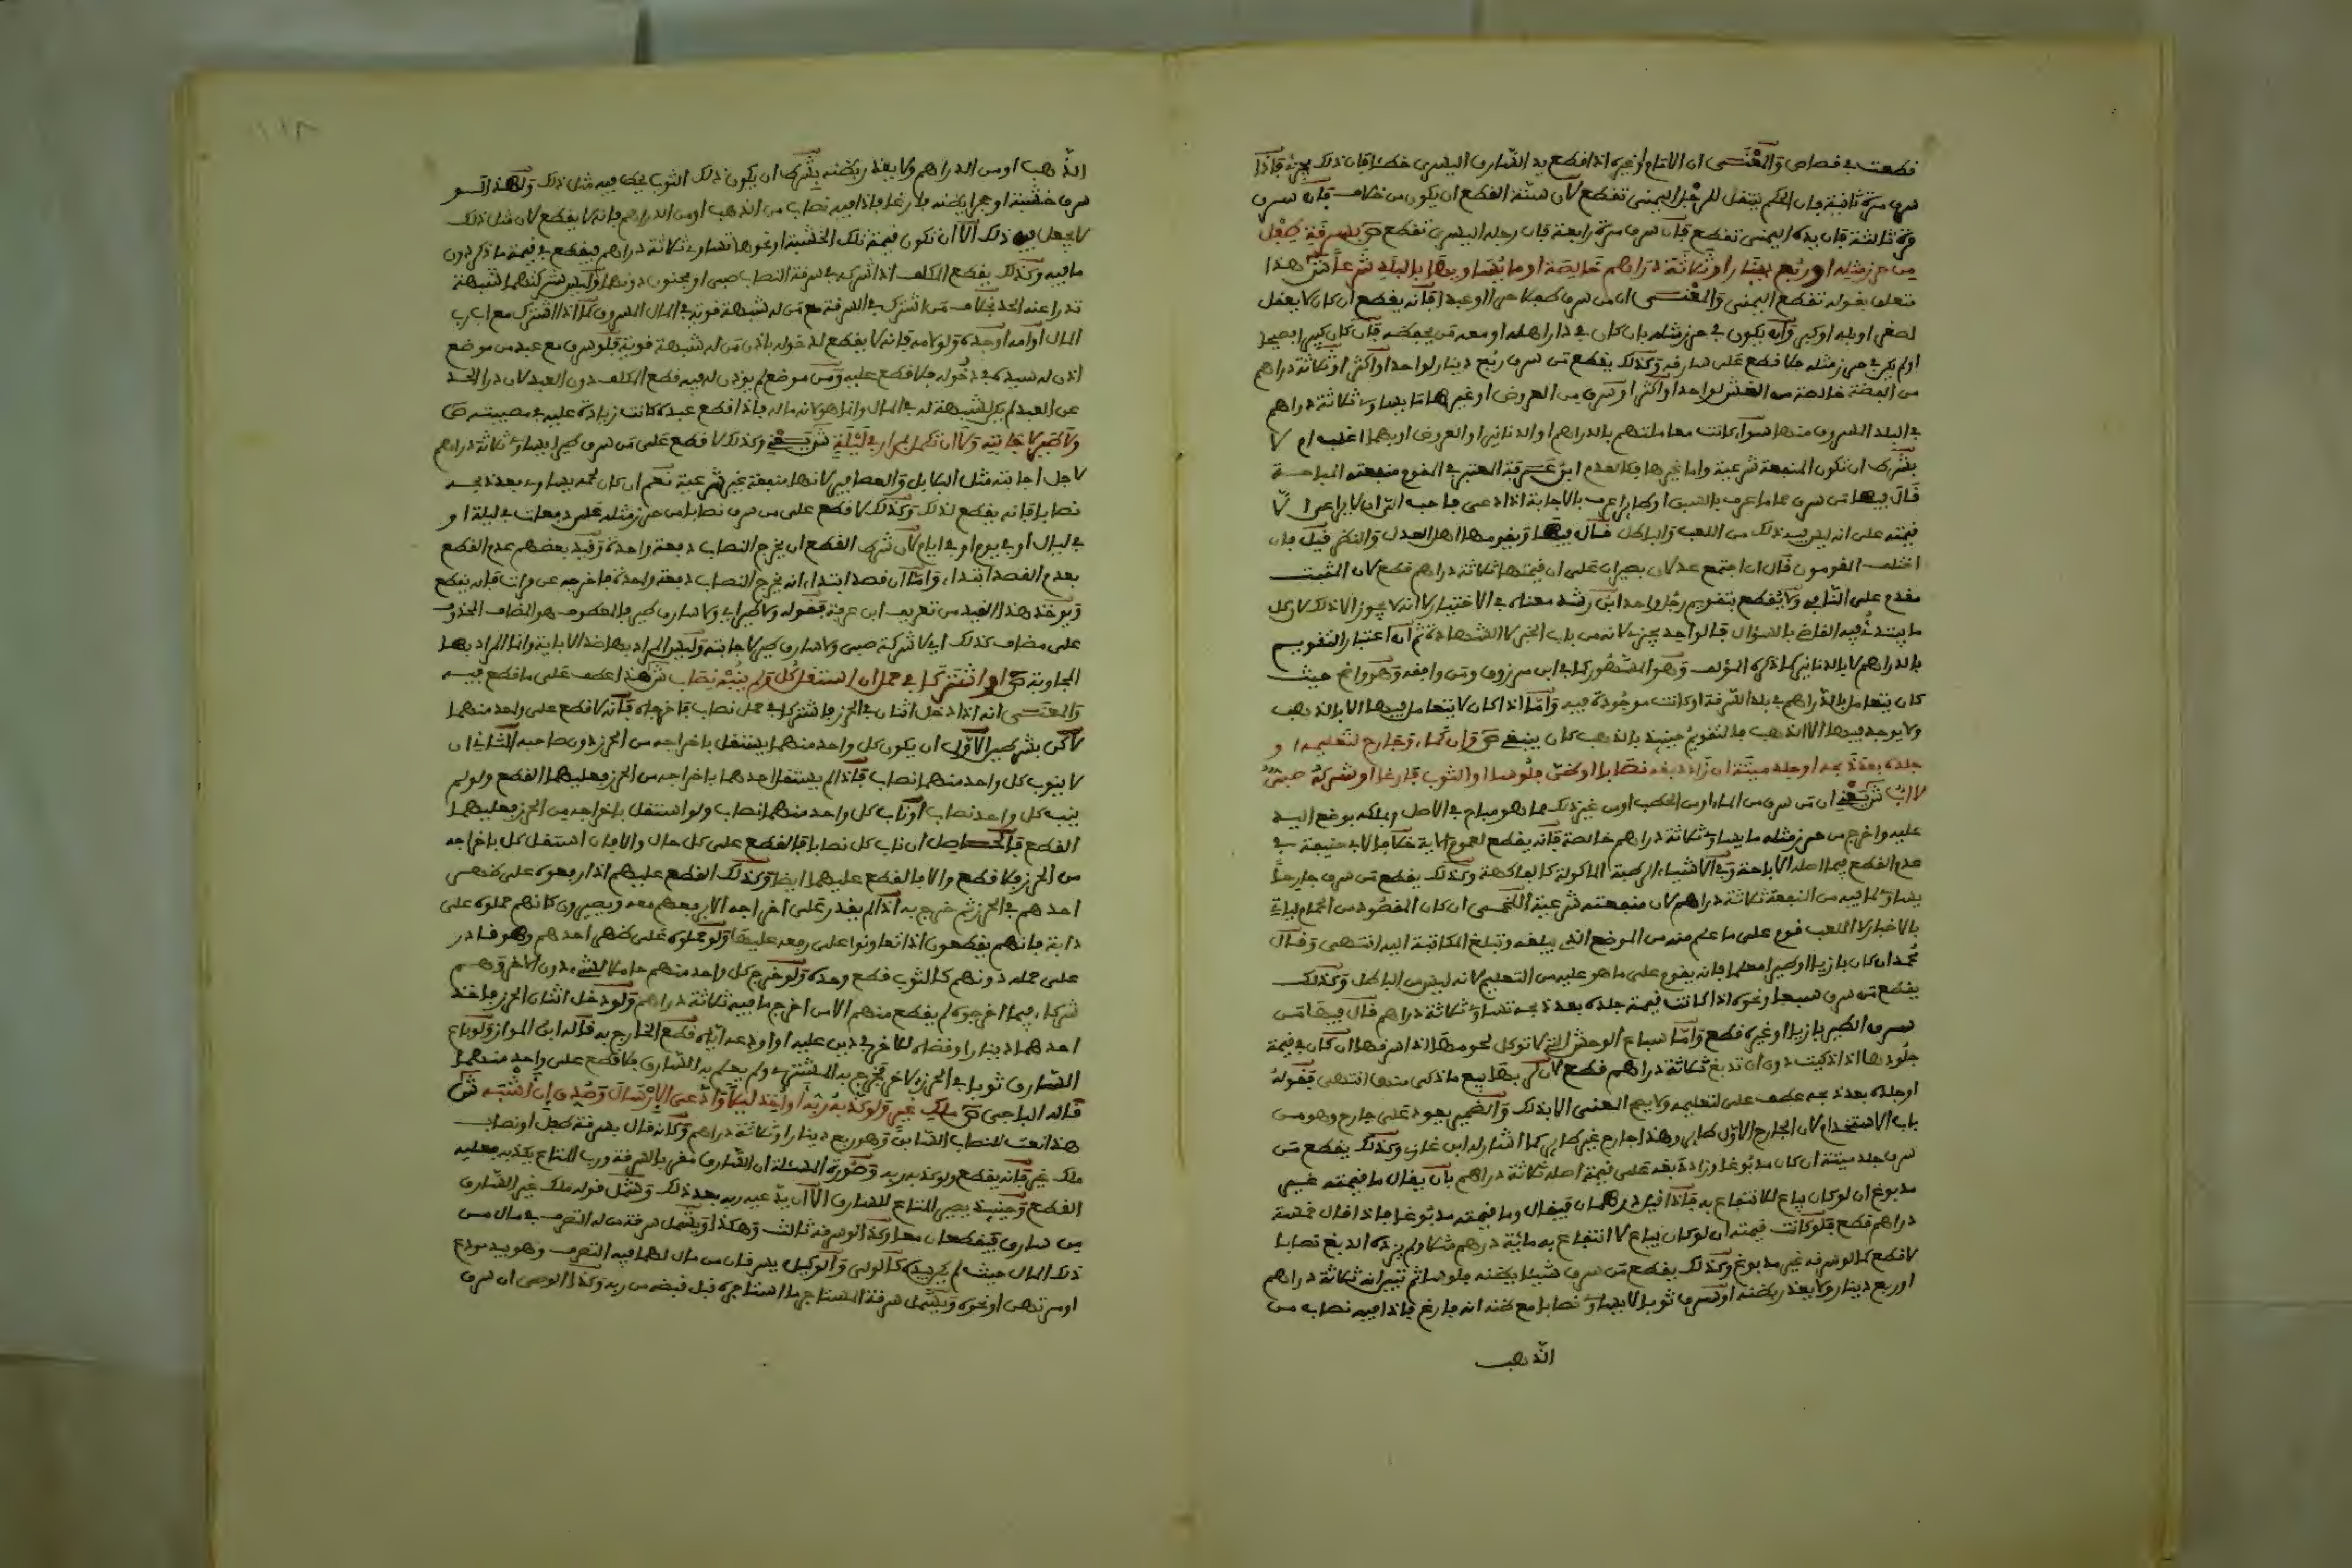 قطعت في قصاص والمعنى ان الامام او غيره اذا قطع يد السارق اليسرى خطئا فان ذلك يجزئ فاذا
سرق مرة ثانية فان الحكم ينتقل للرجل اليمنى تقطع لان سنة القطع ان يكون من خلاف فان سرق
مرة ثالثة فان يده اليمنى تقطع فان سرق مرة رابعة فان رجله اليسرى تقطع ص بسرقة طفل
من حرز مثله او ربع دينار او ثلاثة دراهم خالصة او ما يساويها بالبلد شرعا ش هذا
متعلق بقوله تقطع اليمنى والمعنى ان من سرق طفلا حرا او عبدا فانه يقطع ان كان لا يعقل
لصغر او بله او كبر وانه يكون في حرز مثله بان كان في دار اهله او معه من يحفظه فان كان كبيرا فصيحا
او لم يكن في حرز مثله فلا قطع على سارقه وكذلك يقطع من سرق ربع دينار لواحد او اكثر او ثلاثة دراهم
من الفضة خالصة من الغش لواحد او اكثر او سرق من العروض او غيرها ما يساوي ثلاثة دراهم
في البلد المسروق منها سواء كانت معاملتهم بالدراهم او الدنانير او العروض او بهما اغلب ام لا
بشرط ان تكون المنفعة شرعية واما غيرها فكالعدم ابن عرفة المعتبر في المقوم منفعته المباحة
قال فيها من سرق حماما عرف بالسبق او طائرا عرف بالاجابة اذا دعي فاحب الي ان لا يراعى الا
قيمته على انه ليس فيه ذلك من اللعب والباطل قال فيها ويقومها اهل العدل والنظر قيل فان
اختلف المقومون قال ان اجتمع عدلان بصيران على ان قيمتها ثلاثة دراهم قطع لان المثبت
مقدم على النافي ولا يقطع بتقويم رجل واحد ابن رشد معناه في الاختيار لا انه لا يجوز الا ذلك لان كل
ما يبتدئ فيه القاضي بالسؤال فالواحد يجزيه لانه من باب الخبر لا الشهادة ثم انه اعتبار التقويم
بالدراهم لا بالدنانير كما ذكره المؤلف وهو المشهور كما في ابن مرزوق ومن وافقه وهو واضح حيث
كان يتعامل بالدراهم في بلد السرقة او كانت موجودة فيه واما اذا كان لا يتعامل فيها الا بالذهب
ولا يوجد فيها الا الذهب فالتقويم حينئذ بالذهب كان ينبغي ص وان كماء وجارح لتعليمه او
جلده بعد ذبحه او جلد ميتة ان زاد دبغه نصابا او ظن فلوسا او الثوب فارغا او شركة صبي
لا اب ش يعني ان من سرق من الماء او من الحطب او من غير ذلك مما هو مباح في الاصل وملكه بوضع اليد
عليه واخرج من حرز مثله ما يساوي ثلاثة دراهم خالصة فانه يقطع لعموم الاية خلافا لابي حنيفة في
عدم القطع فيما اصله الاباحة وفي الاشياء الرطبة الماكولة كالفاكهة وكذلك يقطع من سرق جارحا
يساوي لما فيه من المنفعة ثلاثة دراهم لان منفعته شرعية اللخمي ان كان المقصود من الحمام لياتي
بالاخبار لا اللعب قوم على ما علم منه من الموضع الذي يبلغه وتبلغ المكاتبة اليه انتهى وقال
محمد ان كان بازيا او طيرا معلما فانه يقوم على ما هو عليه من التعليم لانه ليس من الباطل وكذلك
يقطع من سرق سبعا ونحوه اذا كانت قيمة جلده بعد ذبحه تساوي ثلاثة دراهم قال فيها من
سرق الطير بازيا او غيره قطع واما سباع الوحش التي لا توكل لحومها اذا سرقها ان كان في قيمة
جلودها اذا ذكيت دون ان تدبغ ثلاثة دراهم قطع لان لربها بيع ما ذكي منها انتهى فقوله
او جلده بعد ذبحه عطف على لتعليمه ولا يتم المعنى الا بذلك والضمير يعود على جارح وهو من
باب الاستخدام لان الجارح الاول طائر وهذا جارح غير طائر كما اشار له ابن غازي وكذلك يقطع من
سرق جلد ميتة ان كان مدبوغا وزاد دبغه على قيمة اصله ثلاثة دراهم بان يقال ما قيمته غير
مدبوغ ان لو كان يباع للانتفاع به فاذا قيل درهمان فيقال وما قيمته مدبوغا فاذا قال خمسة
دراهم قطع فلو كانت قيمته ان لو كان يباع لا انتفاع به مائة درهم مثلا ولم يزده الدبغ نصابا
لا قطع كما لو سرقه غير مدبوغ وكذلك يقطع من سرق شيئا يظنه فلوسا ثم تبين انه ثلاثة دراهم
او ربع دينار ولا يعذر بظنه او سرق ثوبا لا يساوي نصابا مع ظنه انه فارغ فاذا فيه نصاب من
الذهب
١١٨
الذهب او من الدراهم ولا يعذر بظنه بشرط ان يكون ذلك الثوب يجعل فيه مثل ذلك ولهذا لو
سرق خشبة او حجرا يظنه فارغا فاذا فيه نصاب من الذهب او من الدراهم فانه لا يقطع لان مثل ذلك
لا يجعل فيه ذلك الا ان تكون قيمة تلك الخشبة او نحوها تساوي ثلاثة دراهم فيقطع في قيمة ما ذكر دون
ما فيه وكذلك يقطع المكلف اذا شركه في سرقة النصاب صبي او مجنون دونهما وليس شركتهما شبهة
تدرا عنه الحد بخلاف من اشترك في السرقة مع من له شبهة قوية في المال المسروق كما اذا اشترك مع اب رب
المال او امه او جده ولو لامه فانه لا يقطع لدخوله باذن من له شبهة قوية فلو سرق مع عبد من موضع
اذن له سيده في دخوله فلا قطع عليه ومن موضع لم يؤذن له فيه قطع المكلف دون العبد لان درا الحد
عن العبد لم يكن لشبهة له في المال وانما هو لانه ماله فاذا قطع عبده كانت زيادة عليه في مصيبته ص
ولا طير لاجابته ولا ان تكمل بمرار في ليلة ش يعني وكذلك لا قطع على من سرق طيرا يساوي ثلاثة دراهم
لاجل اجابته مثل البلابل والعصافير لانها منفعة غير شرعية نعم ان كان لحمه يساوي بعد ذبحه
نصابا فانه يقطع لذلك وكذلك لا قطع على من سرق نصابا من حرز مثله على دفعات في ليلة او
في ليال او في يوم او في ايام لان شرط القطع ان يخرج النصاب دفعة واحدة وقيد بعضهم عدم القطع
بعدم القصد ابتداء واما ان قصد ابتداء انه يخرج النصاب دفعة واحدة فاخرجه على مرات فانه يقطع
ويوخذ هذا القيد من تعريف ابن عرفة فقوله ولا طير اي ولا سارق طير فالمعطوف هو المضاف المحذوف
على مضاف كذلك اي لا شركة صبي ولا سارق طير لاجابته وليس المراد بها ضد الاباية وانما المراد بها
المجاوبة ص او اشتركا في حمل ان استقل كل ولم ينبه نصاب ش هذا عطف على ما لا قطع فيه
والمعنى انه اذا دخل اثنان في الحرز فاشتركا في حمل نصاب فاخرجاه فانه لا قطع على واحد منهما
لكن بشرطين الاول ان يكون كل واحد منهما يستقل باخراجه من الحرز دون صاحبه الثاني ان
لا ينوب كل واحد منهما نصاب فاذا لم يستقل احدهما باخراجه من الحرز فعليهما القطع ولو لم
ينب كل واحد نصاب او ناب كل واحد منهما نصاب ولو استقل باخراجه من الحرز فعليهما
القطع فالحاصل ان ناب كل نصابا فالقطع على كل حال والا فان استقل كل باخراجه
من الحرز فلا قطع والا فالقطع عليهما ايضا وكذلك القطع عليهم اذا رفعوه على ظهر
احدهم في الحرز ثم خرج به اذا لم يقدر على اخراجه الا برفعهم معه ويصيرون كانهم حملوه على
دابة فانهم يقطعون اذا تعاونوا على رفعه عليها ولو حملوه على ظهر احدهم وهو قادر
على حمله دونهم كالثوب قطع وحده ولو خرج كل واحد منهم حاملا لشيء دون الاخر وهم
شركاء فيما اخرجوه لم يقطع منهم الا من اخرج ما فيه ثلاثة دراهم ولو دخل اثنان الحرز فاخذ
احدهما دينارا وقضاه للاخر في دين عليه او اودعه اياه قطع الخارج به قاله ابن المواز ولو باع
السارق ثوبا في الحرز لاخر فخرج به المشتري ولم يعلم به السارق فلا قطع على واحد منهما
قاله الباجي ص ملك غير ولو كذبه ربه او اخذ ليلا وادعى الارسال وصدق ان اشبه ش
هذا نعت للنصاب السابق وهو ربع دينار او ثلاثة دراهم وكانه قال بسرقة طفل او نصاب
ملك غير فانه يقطع ولو كذبه ربه وصورة المسئلة ان السارق مقر بالسرقة ورب المتاع يكذبه فعليه
القطع وحينئذ يصير المتاع للسارق الا ان يدعيه ربه بعد ذلك وشمل قوله ملك غير السارق
من سارق فيقطعان معا وكذا لو سرقه ثالث وهكذا ويشمل سرقة من له التصرف في مال من
ذلك المال حيث لم يكن بيده كالوصي والوكيل يسرقان من مال لهما فيه التصرف وهو بيد مودع
او مرتهن او نحوه ويشمل سرقة المستاجر ما استاجره قبل قبضه من ربه وكذا الوصي ان سرق